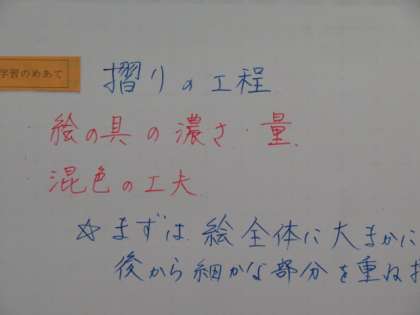 学習のめあて
摺りの工程
・絵の具の濃さ・量
・混色の工夫
☆まずは絵全体に大まかに
後から細かな部分を重ね